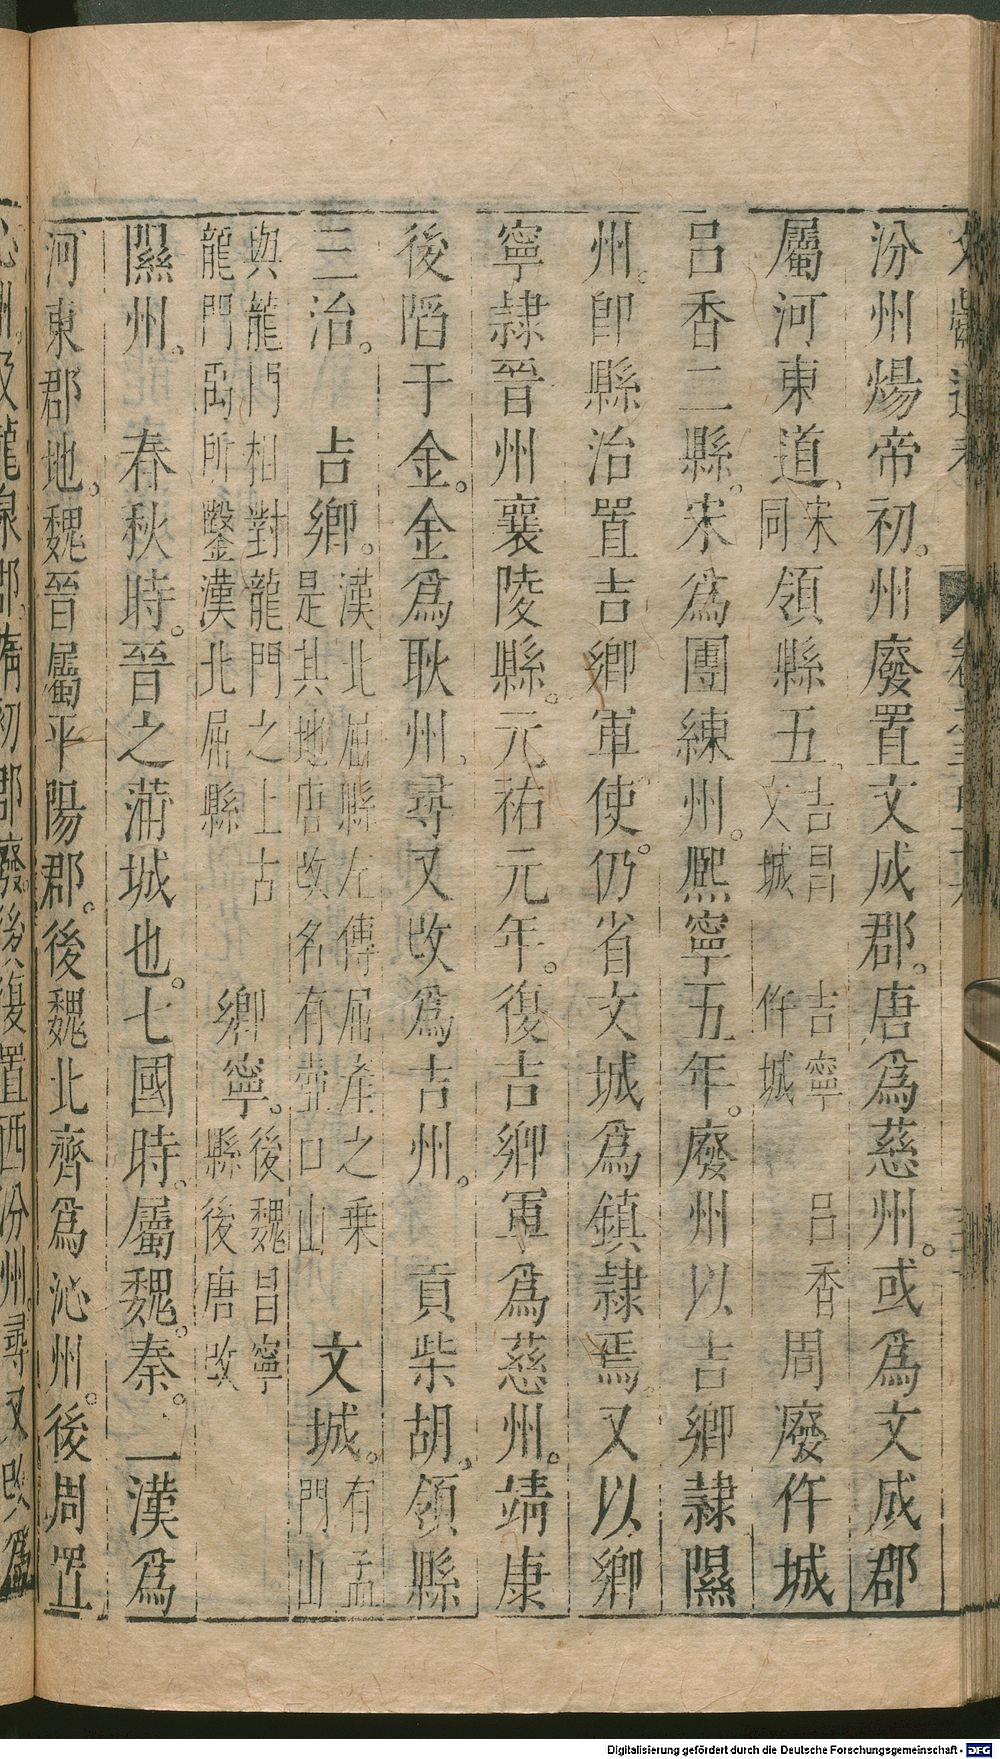 汾州煬帝初。州廢置文成郡。唐爲慈州。或爲文成郡
屬河東道。宋同領縣五。吉昌文城吉寧仵城呂香周廢仵城
呂香二縣。宋爲團練州。熙寧五年。廢州以吉鄉隸隰
州。卽縣治置吉鄉軍使。仍省文城爲鎮隸焉。又以鄉
寧隸晉州襄陵縣。元祐元年。復吉鄉軍爲慈州。靖康
後陷于金。金爲耿州。尋又改爲吉州。貢柴胡。領縣
三治。吉鄉。漢北屈縣左傳屈產之乘是其地唐改名有壺口山文城。有孟門山
與龍門相對龍門之上古龍門禹所鑿漢北屈縣鄉寧。後魏昌寧縣後唐改
隰州。春秋時。晉之蒲城也。七國時。屬魏。秦。二漢爲
河東郡地。魏晉屬平陽郡。後魏北齊爲沁州。後周置
沁州。及龍泉郡。隋初郡廢。後復置西汾州。尋又改爲
Digitalisierung gefördert durch die Deutsche Forschungsgemeinschaft - DFG